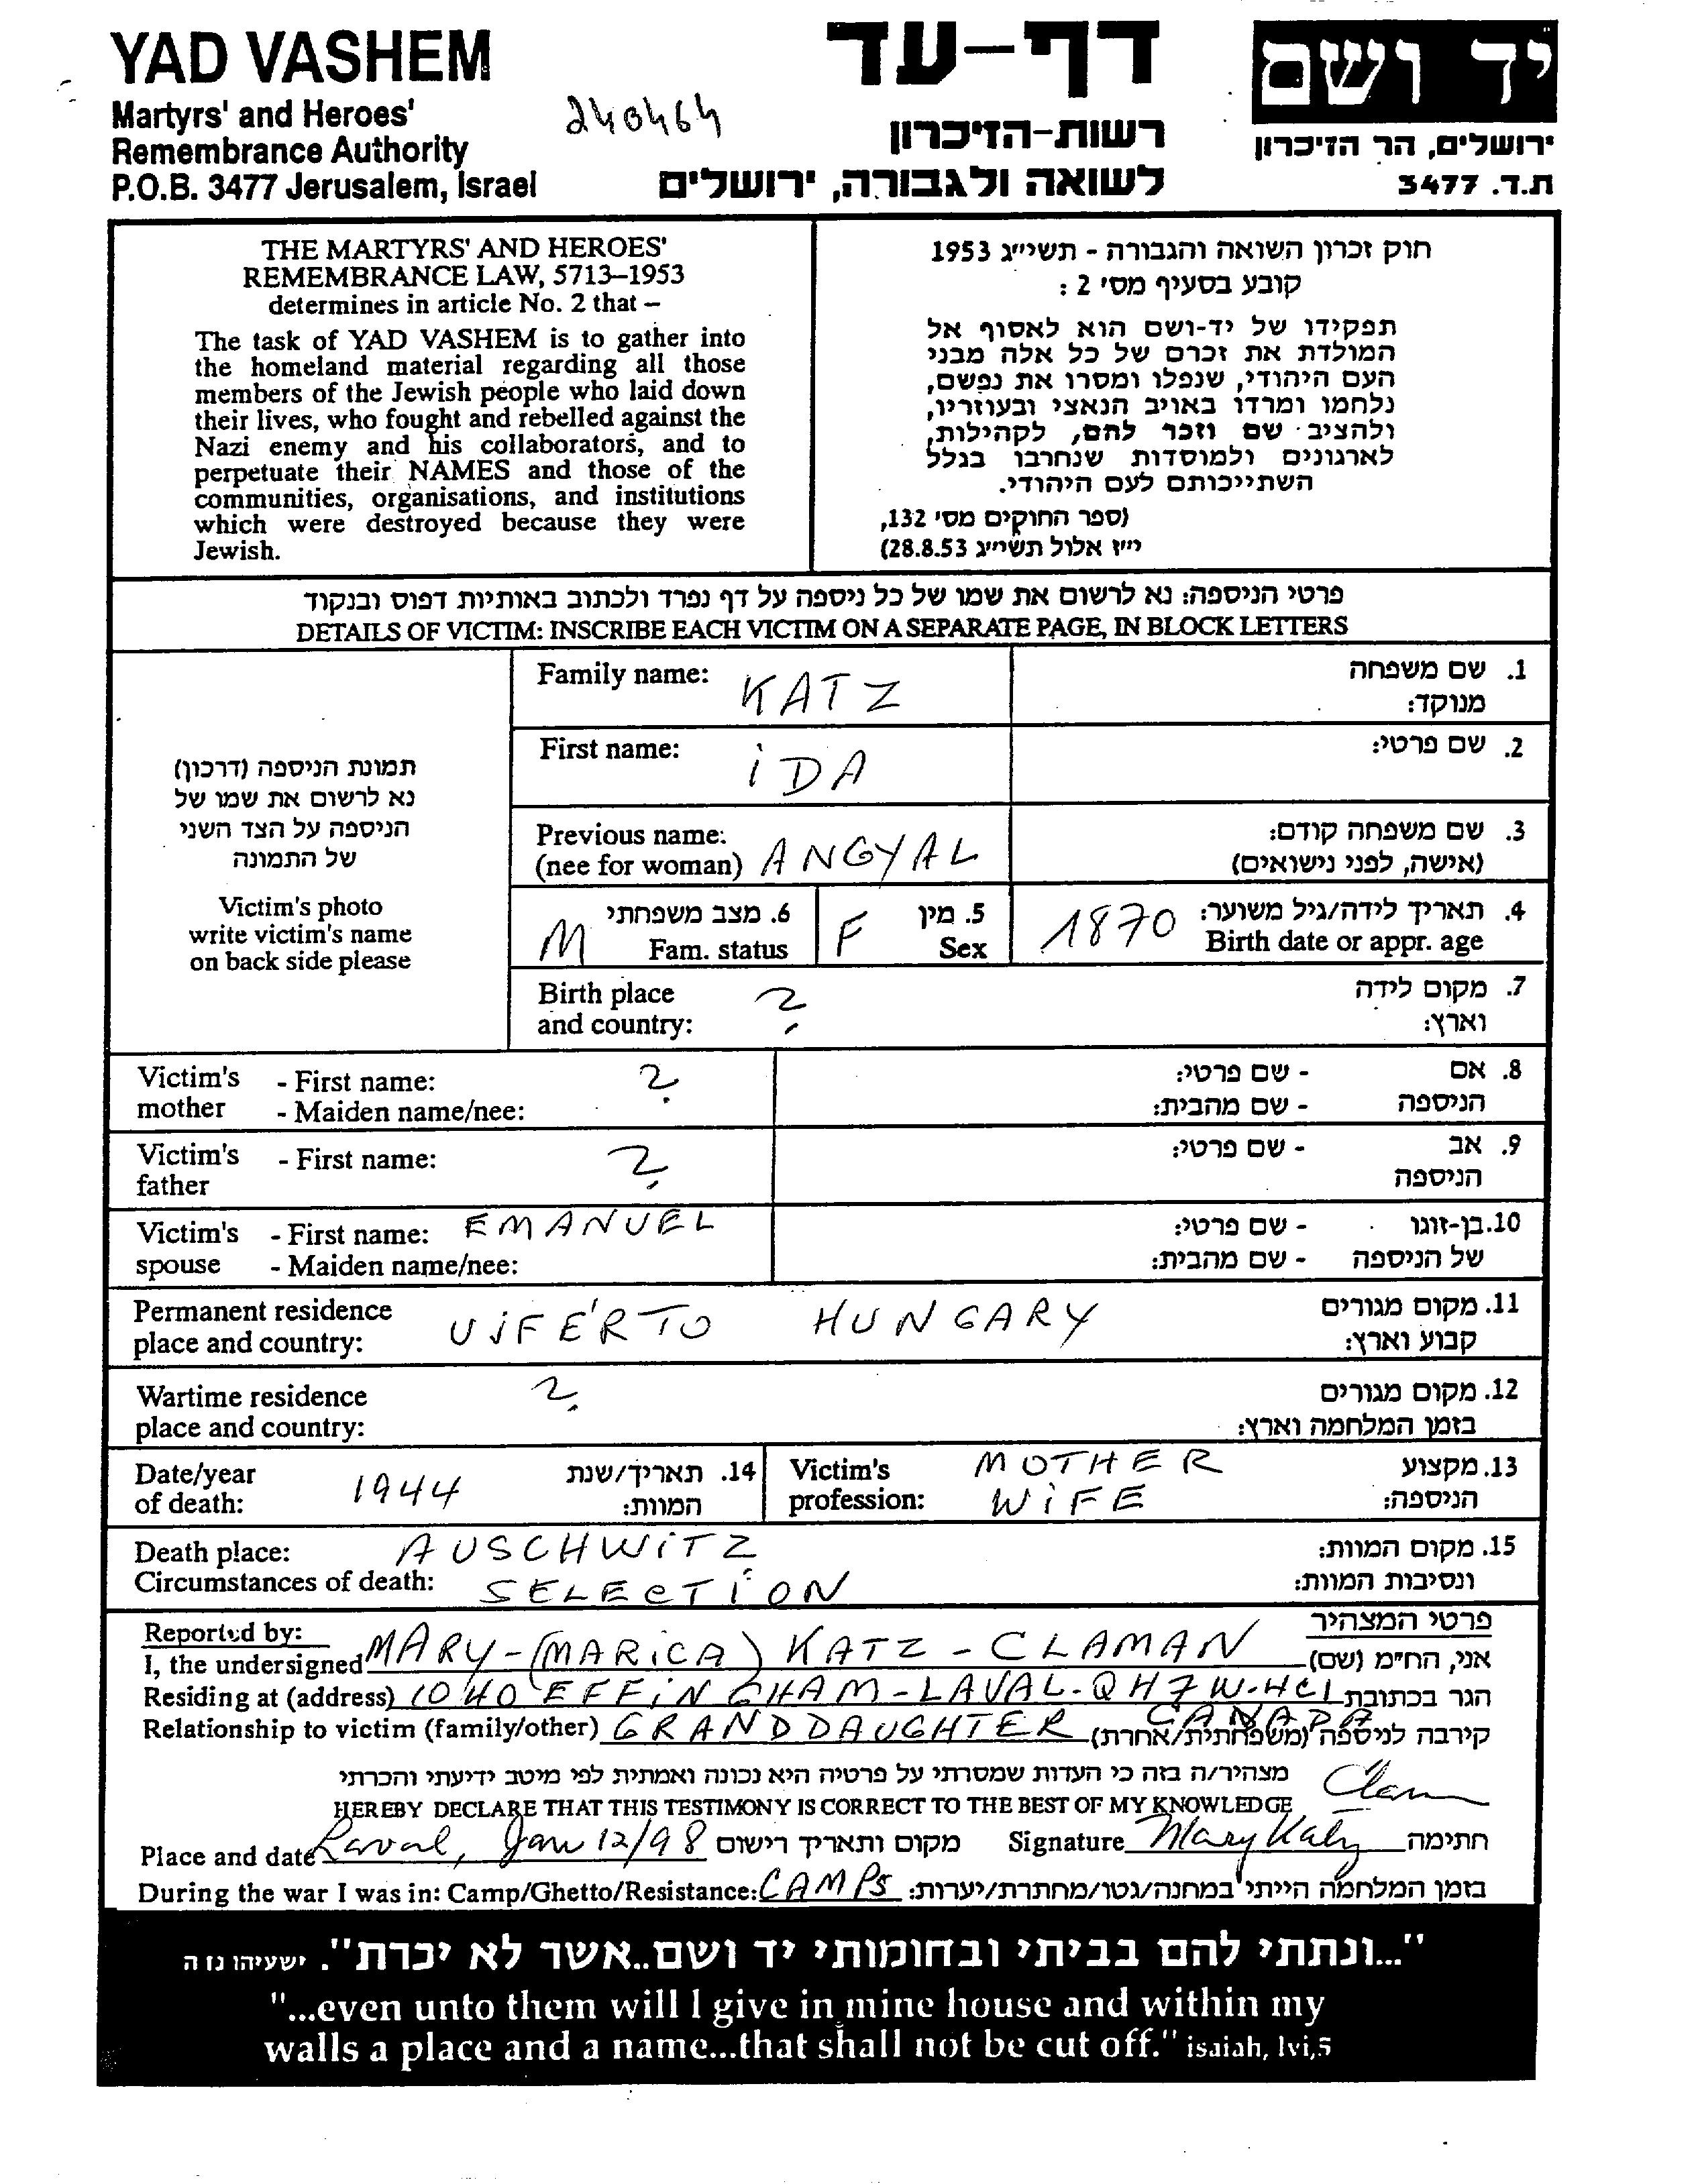 YAD VASHEM
Martyrs' and Heroes'
Remembrance Authority
P.O.B. 3477 Jerusalem, Israel
240464
דף-עד
רשות-הזיכרון
לשואה ולגבורה, ירושלים
יד ושם
ירושלים, הר הזיכרון
ת.ד. 3477
THE MARTYRS' AND HEROES'
REMEMBRANCE LAW, 5713–1953
determines in article No. 2 that –
The task of YAD VASHEM is to gather into
the homeland material regarding all those
members of the Jewish people who laid down
their lives, who fought and rebelled against the
Nazi enemy and his collaborators, and to
perpetuate their NAMES and those of the
communities, organisations, and institutions
which were destroyed because they were
Jewish.
חוק זכרון השואה והגבורה - תשי״ג 1953
קובע בסעיף מס׳ 2 :
תפקידו של יד-ושם הוא לאסוף אל
המולדת את זכרם של כל אלה מבני
העם היהודי, שנפלו ומסרו את נפשם,
נלחמו ומרדו באויב הנאצי ובעוזריו,
ולהציב שם וזכר להם, לקהילות,
לארגונים ולמוסדות שנחרבו בגלל
השתייכותם לעם היהודי.
(ספר החוקים מס׳ 132,
י״ז אלול תשי״ג 28.8.53)
פרטי הניספה: נא לרשום את שמו של כל ניספה על דף נפרד ולכתוב באותיות דפוס ובנקוד
DETAILS OF VICTIM: INSCRIBE EACH VICTIM ON A SEPARATE PAGE, IN BLOCK LETTERS
תמונת הניספה (דרכון)
נא לרשום את שמו של
הניספה על הצד השני
של התמונה
Victim's photo
write victim's name
on back side please
Family name: KATZ 1. שם משפחה
מנוקד:
First name: iDA 2. שם פרטי:
Previous name: 3. שם משפחה קודם:
(nee for woman) ANGYAL (אישה, לפני נישואים)
M 6. מצב משפחתי F 5. מין 1870 4. תאריך לידה/גיל משוער:
Fam. status Sex Birth date or appr. age
Birth place ? 7. מקום לידה
and country: וארץ:
Victim's - First name: ? - שם פרטי: 8. אם
mother - Maiden name/nee: - שם מהבית: הניספה
Victim's - First name: ? - שם פרטי: 9. אב
father הניספה
Victim's - First name: EMANUEL - שם פרטי: 10. בן-זוגו
spouse - Maiden name/nee: - שם מהבית: של הניספה
Permanent residence 11. מקום מגורים
place and country: UJFÉRTO HUNGARY קבוע וארץ:
Wartime residence ? 12. מקום מגורים
place and country: בזמן המלחמה וארץ:
Date/year 1944 14. תאריך/שנת Victim's MOTHER 13. מקצוע
of death: המוות: profession: WiFE הניספה:
Death place: AUSCHWiTZ 15. מקום המוות:
Circumstances of death: SELECTiON ונסיבות המוות:
Reported by: פרטי המצהיר
I, the undersigned MARY-(MARiCA) KATZ-CLAMAN אני, הח״מ (שם)
Residing at (address) 1040 EFFiNGHAM-LAVAL-Q H7W-4C1 הגר בכתובת
CANADA
Relationship to victim (family/other) GRANDDAUGHTER קירבה לניספה (משפחתית/אחרת)
מצהיר/ה בזה כי העדות שמסרתי על פרטיה היא נכונה ואמתית לפי מיטב ידיעתי והכרתי
HEREBY DECLARE THAT THIS TESTIMONY IS CORRECT TO THE BEST OF MY KNOWLEDGE
Place and date Laval, Jan 12/98 מקום ותאריך רישום Signature Mary Katz חתימה
During the war I was in: Camp/Ghetto/Resistance: CAMPS בזמן המלחמה הייתי במחנה/גטו/מחתרת/יערות:
"...ונתתי להם בביתי ובחומותי יד ושם..אשר לא יכרת". ישעיהו נז ה
"...even unto them will I give in mine house and within my
walls a place and a name...that shall not be cut off." isaiah, lvi,5